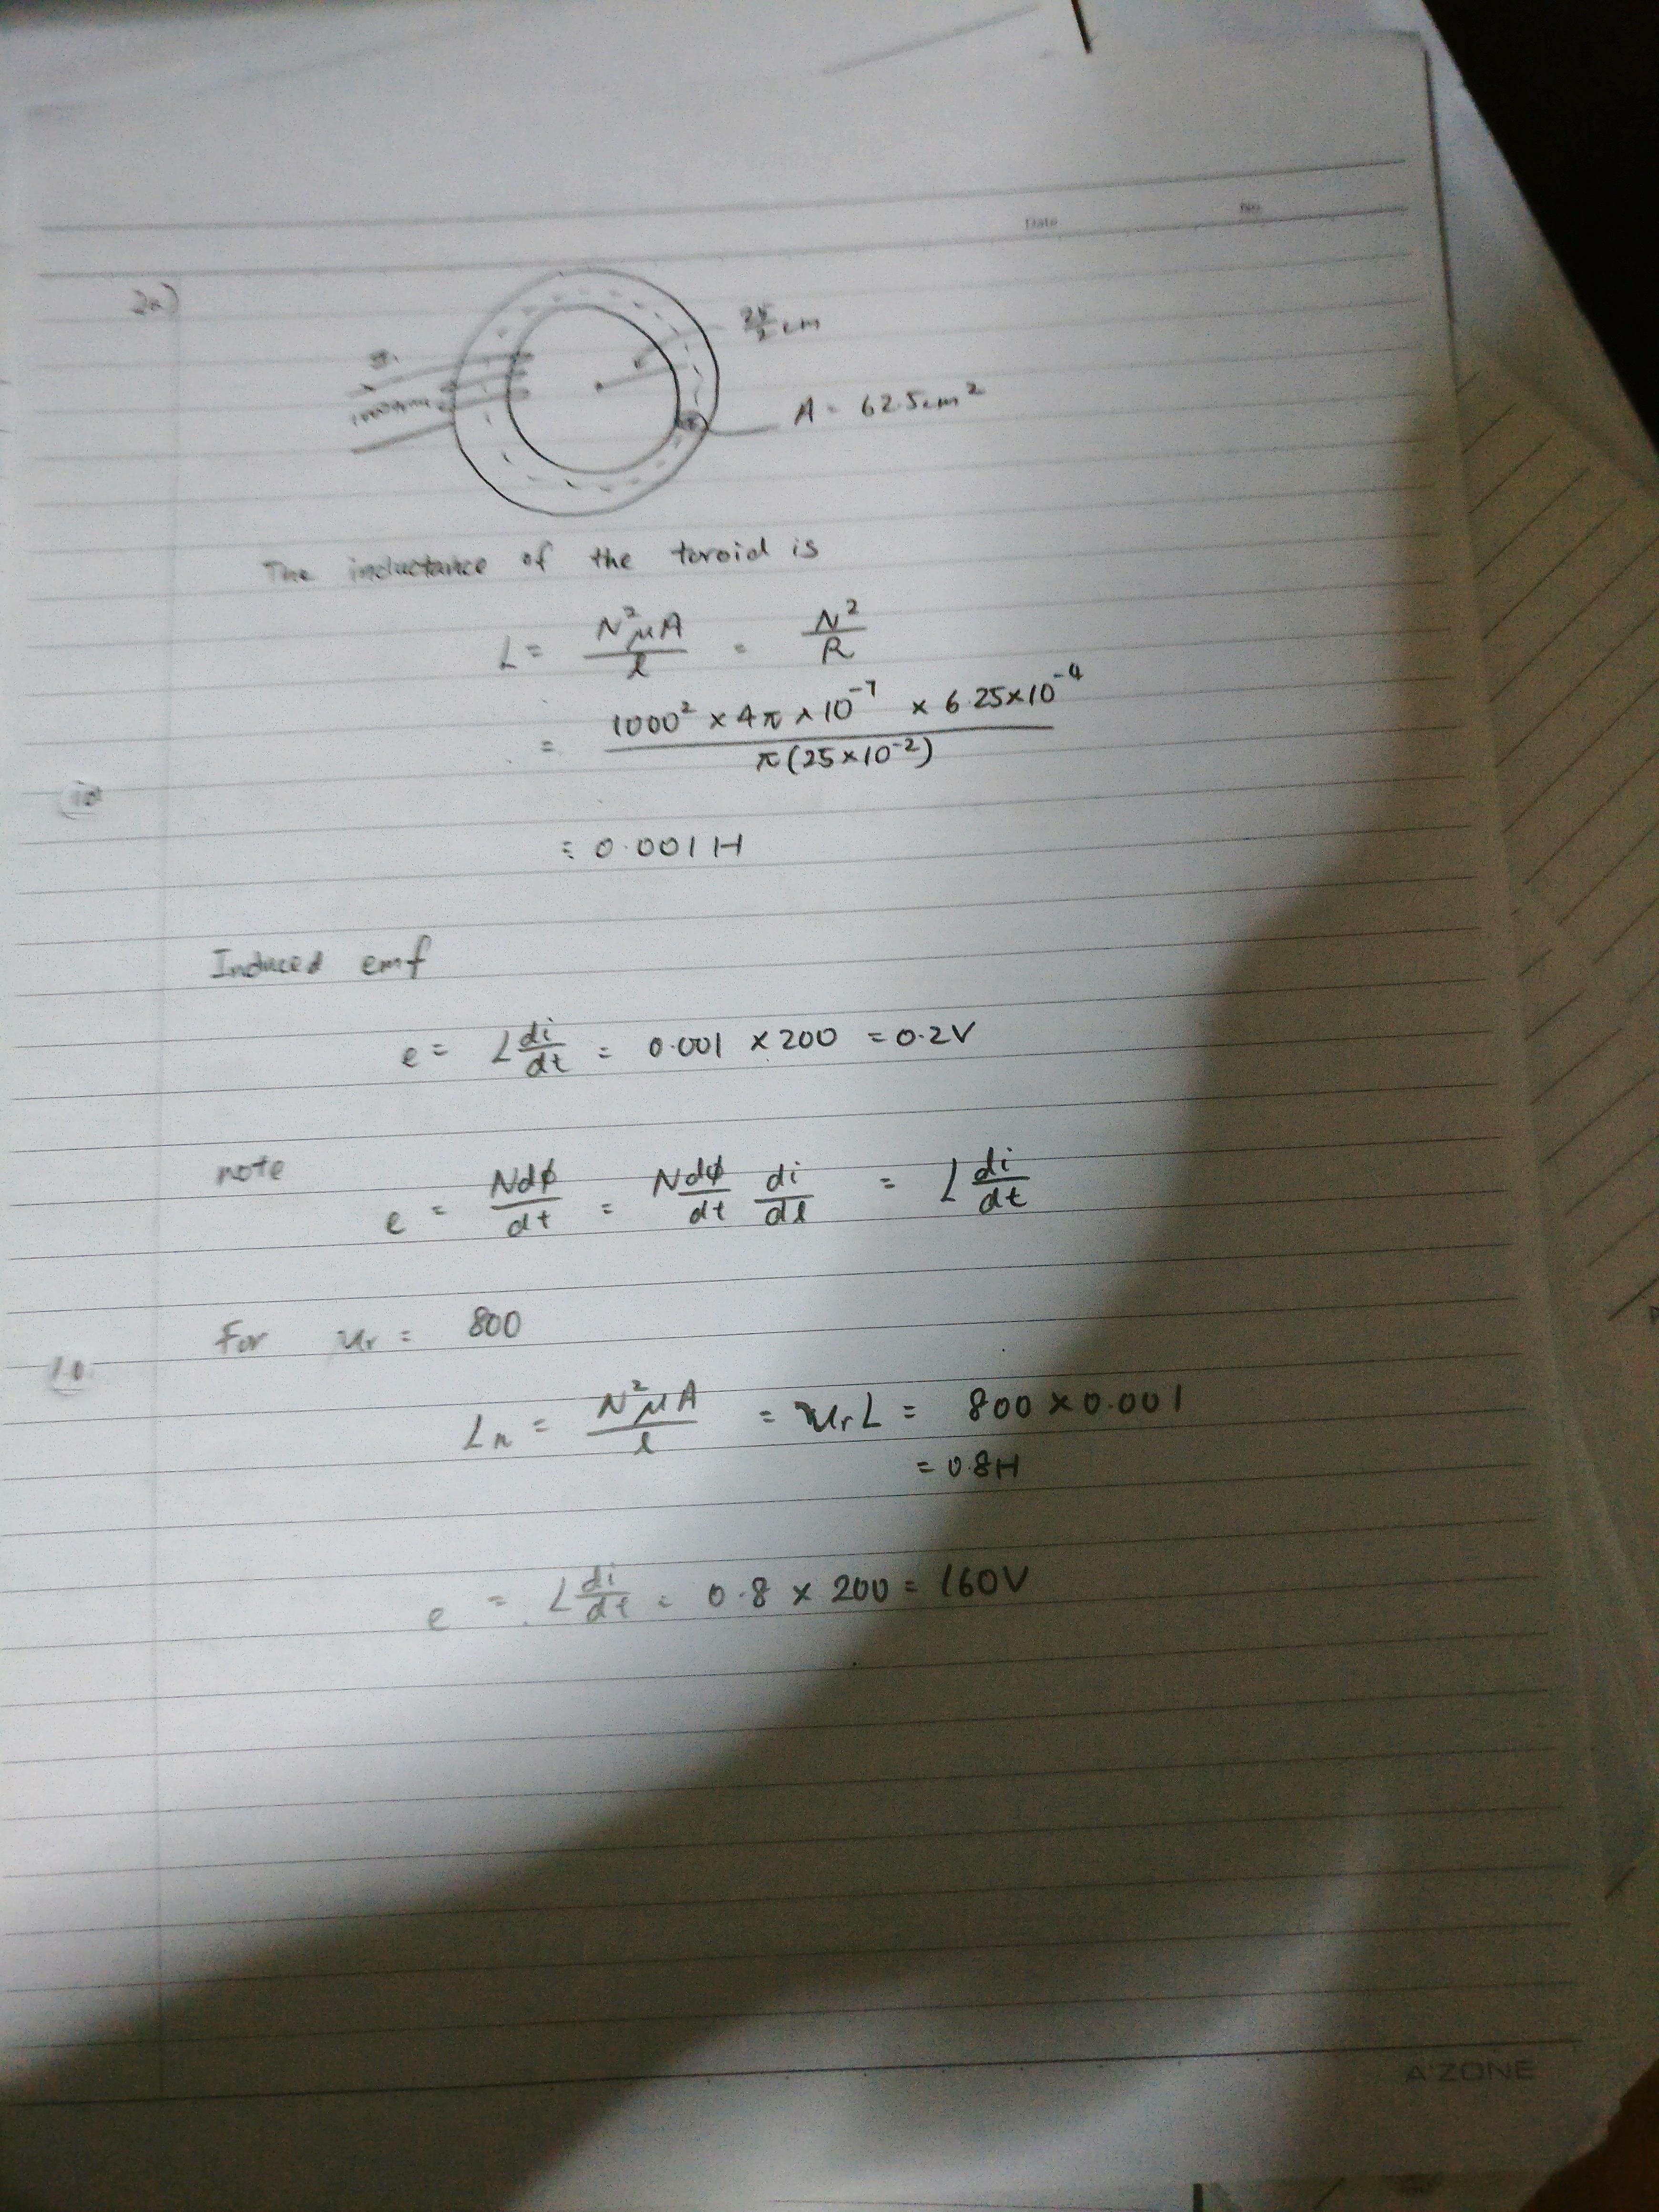 Date
No.
2a)
25/2 cm
A = 62.5cm²
The inductance of the toroid is
L = N²μA/l = N²/R
= 1000² × 4π × 10⁻⁷ × 6.25×10⁻⁴ / π(25×10⁻²)
= 0.001H
Induced emf
e = L di/dt = 0.001 × 200 = 0.2V
note
e = Ndφ/dt = Ndφ/dt di/dl = L di/dt
For ur = 800
10
Ln = N²μA/l = urL = 800 × 0.001
= 0.8H
e = L di/dt = 0.8 × 200 = 160V
A'ZONE